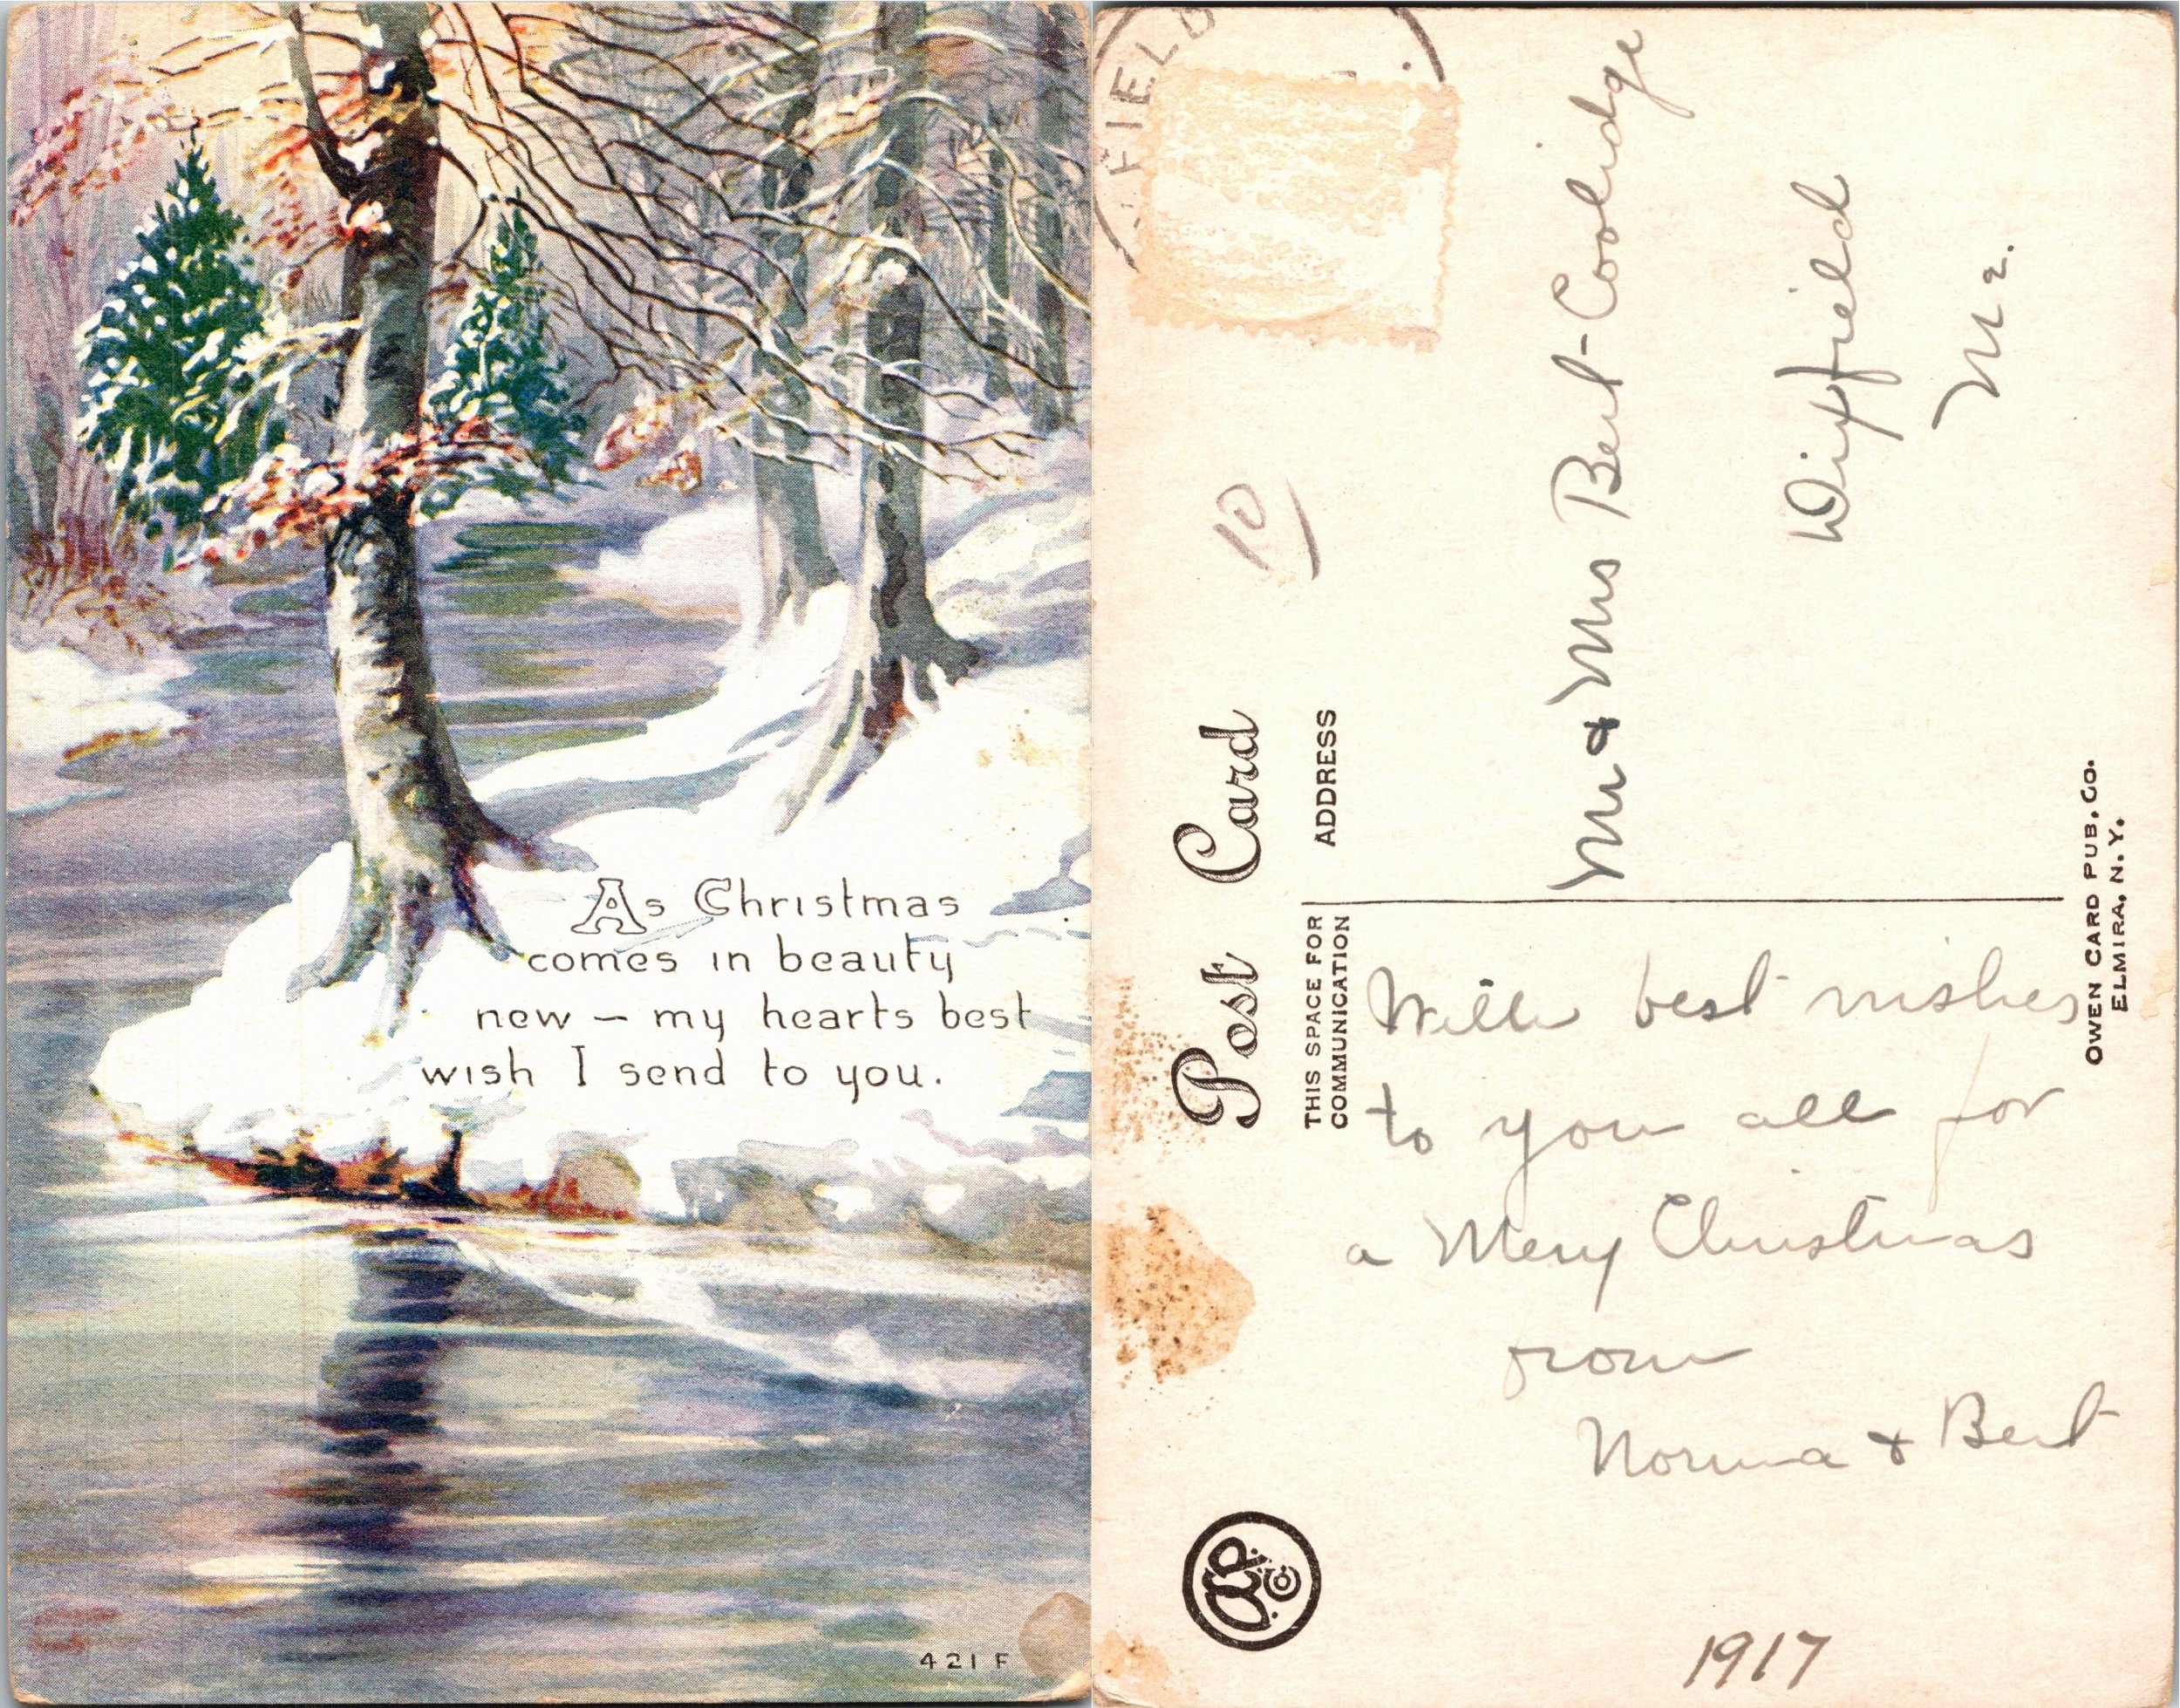 As Christmas
comes in beauty
new – my hearts best
wish I send to you.
421 F
FIELD
10
Post Card
THIS SPACE FOR
COMMUNICATION
ADDRESS
Mr & Mrs Bert Coolidge
Dixfield
Me.
With best wishes
to you all for
a Merry Christmas
from
Norma & Bert
1917
OWEN CARD PUB. CO.
ELMIRA, N.Y.